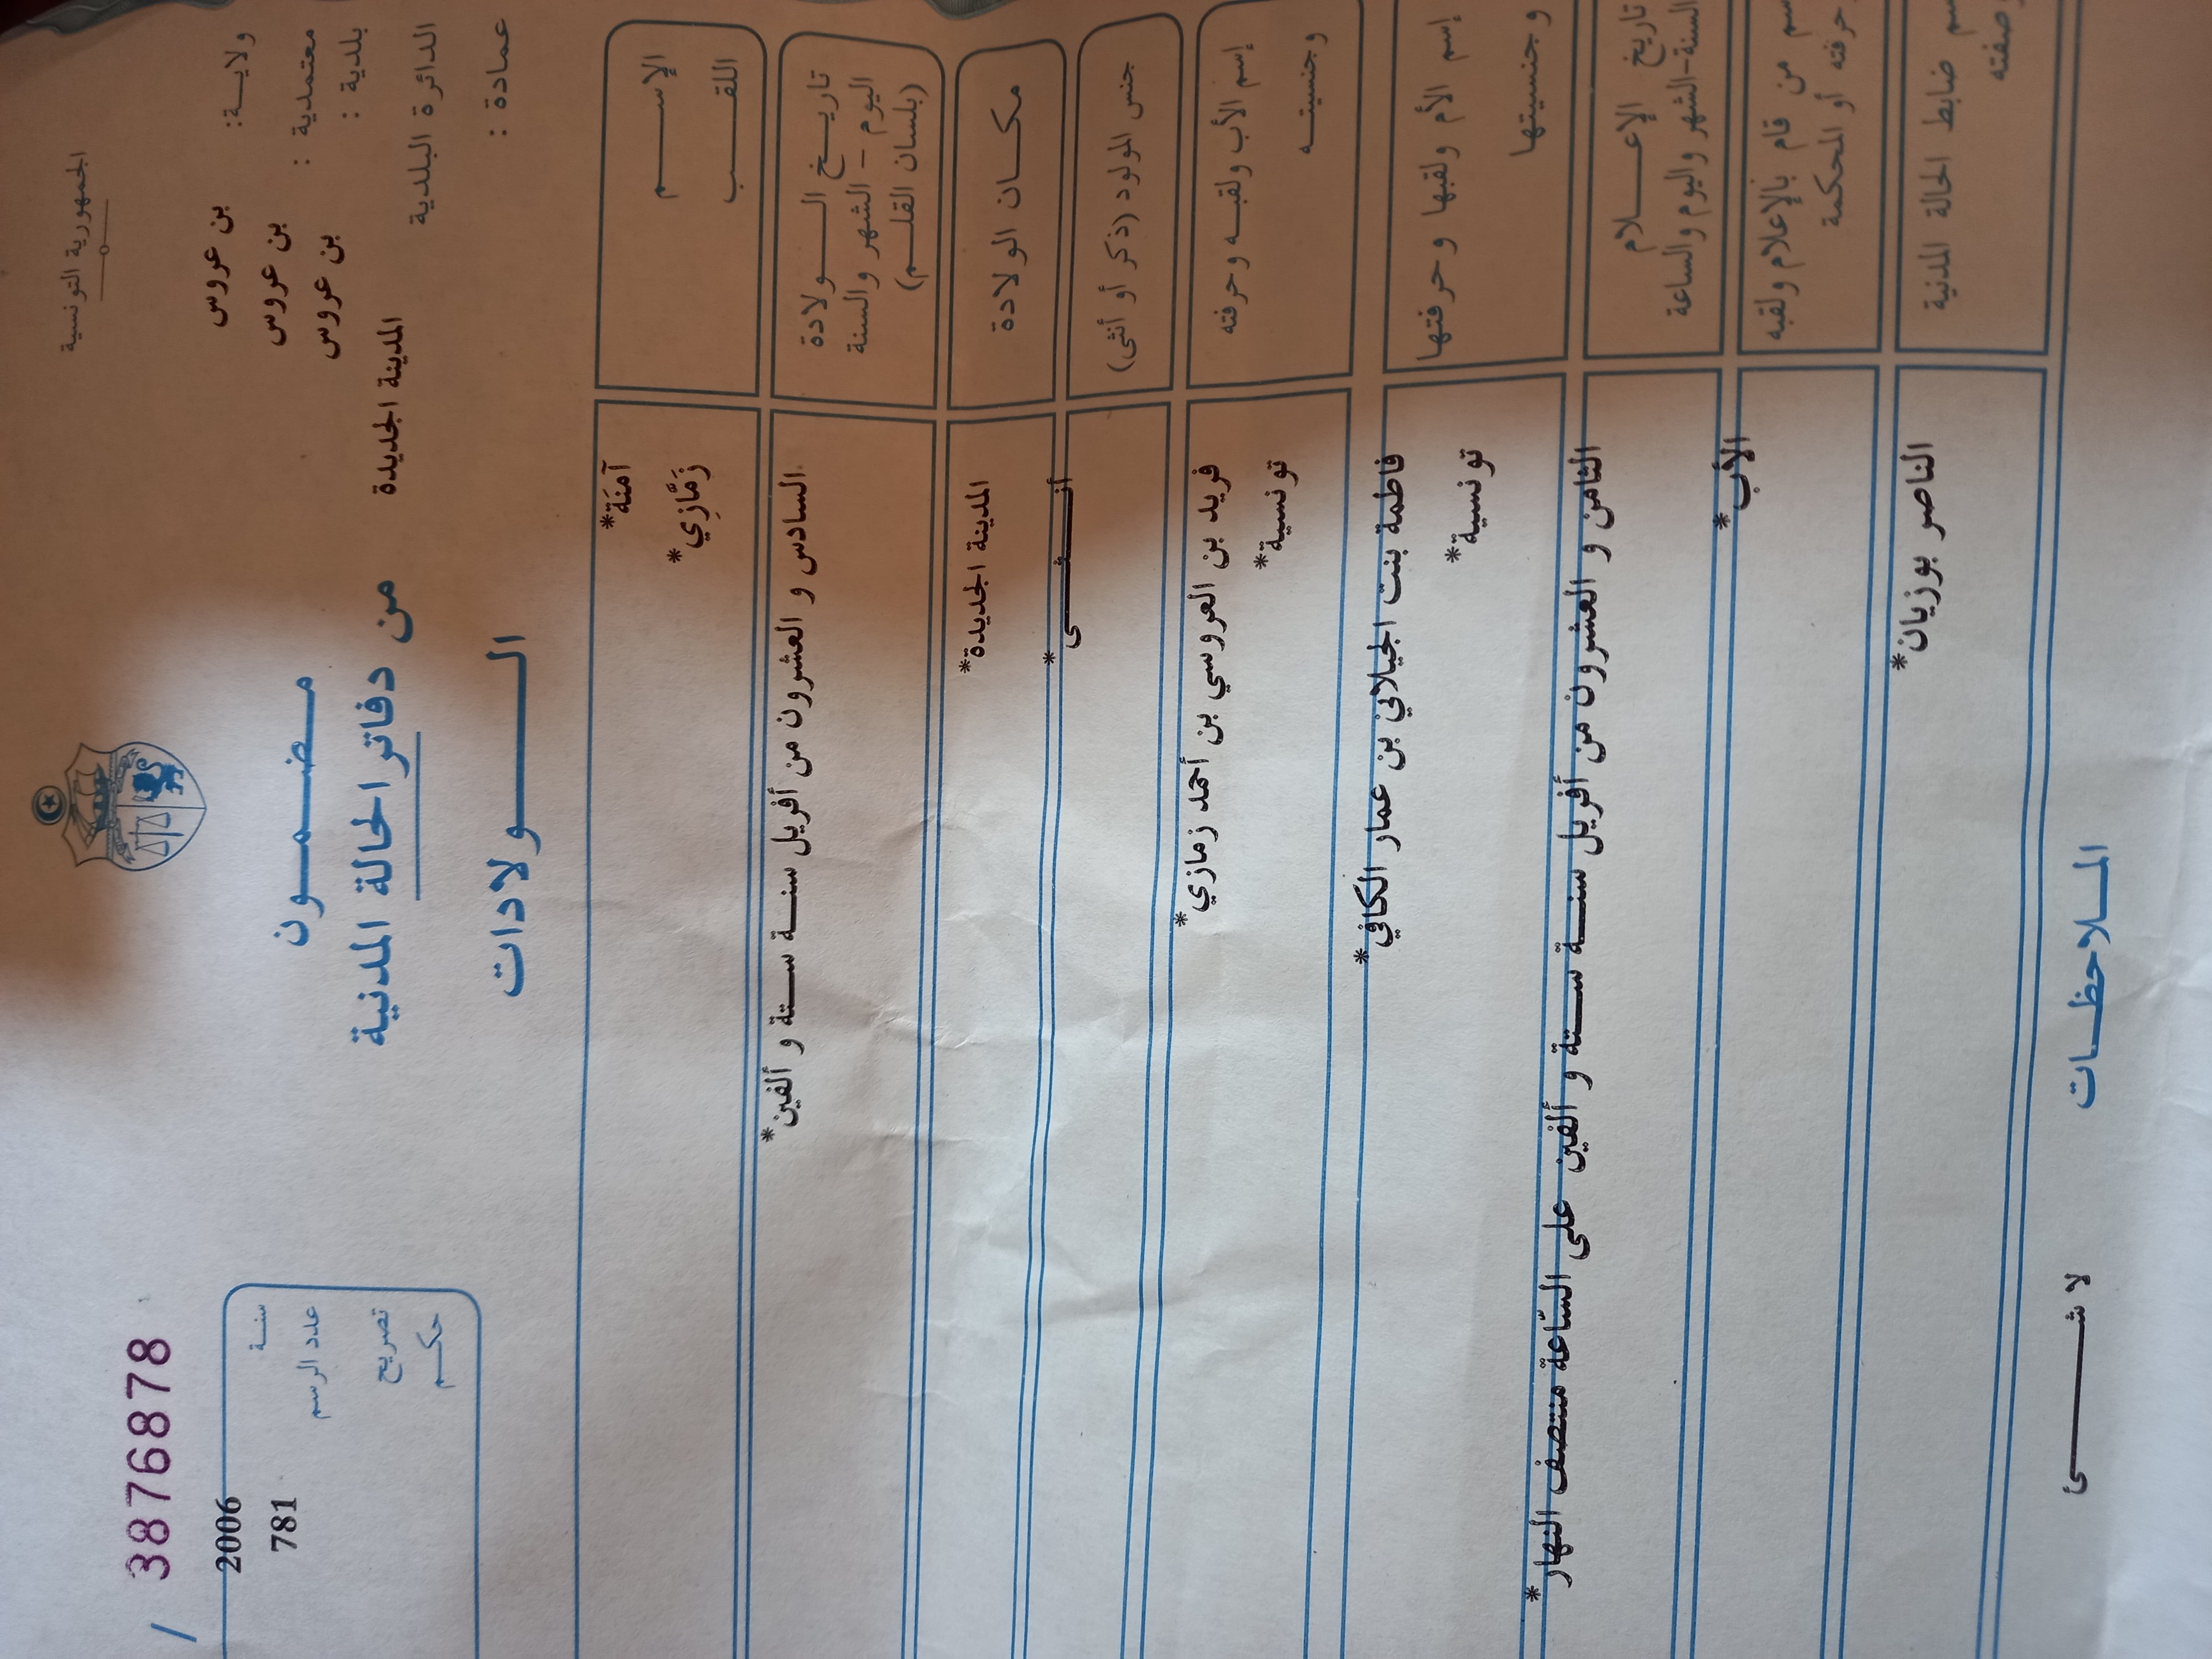 الجمهورية التونسية
ولايــة: بن عروس
معتمدية : بن عروس
بلدية : بن عروس
الدائرة البلدية المدينة الجديدة
عمادة :
مـضـمــون
من دفاتر الحالة المدنية
الــــولادات
/ 3876878
سنــة 2006
عدد الرسم 781
تصريح
حكــم
الإســــم آمنَة*
اللقـــب زَمَّازِي*
تاريــخ الـــولادة
اليوم – الشهر والسنة
(بلسان القلــم)
السادس و العشرون من أفريل سنــة ستة و ألفين*
مكــان الولادة المدينة الجديدة*
جنس المولود (ذكر أو أنثى) أنــثــى*
إسم الأب ولقبــه وحرفته فريد بن العروسي بن أحمد زمازي*
وجنسيتــه تونسية*
إسم الأم ولقبها وحرفتها فاطمة بنت الجيلاني بن عمار الكافي*
وجنسيتها تونسية*
تاريخ الإعـــلام
السنة-الشهر واليوم والساعة
الثامن و العشرون من أفريل سنــة ستة و ألفين على السّاعة منتصف النهار*
من قام بالإعلام ولقبه
حرفته أو المحكمة
الأب*
ضابط الحالة المدنية الناصر بوزيان*
الملاحظــات
لا شــــئ